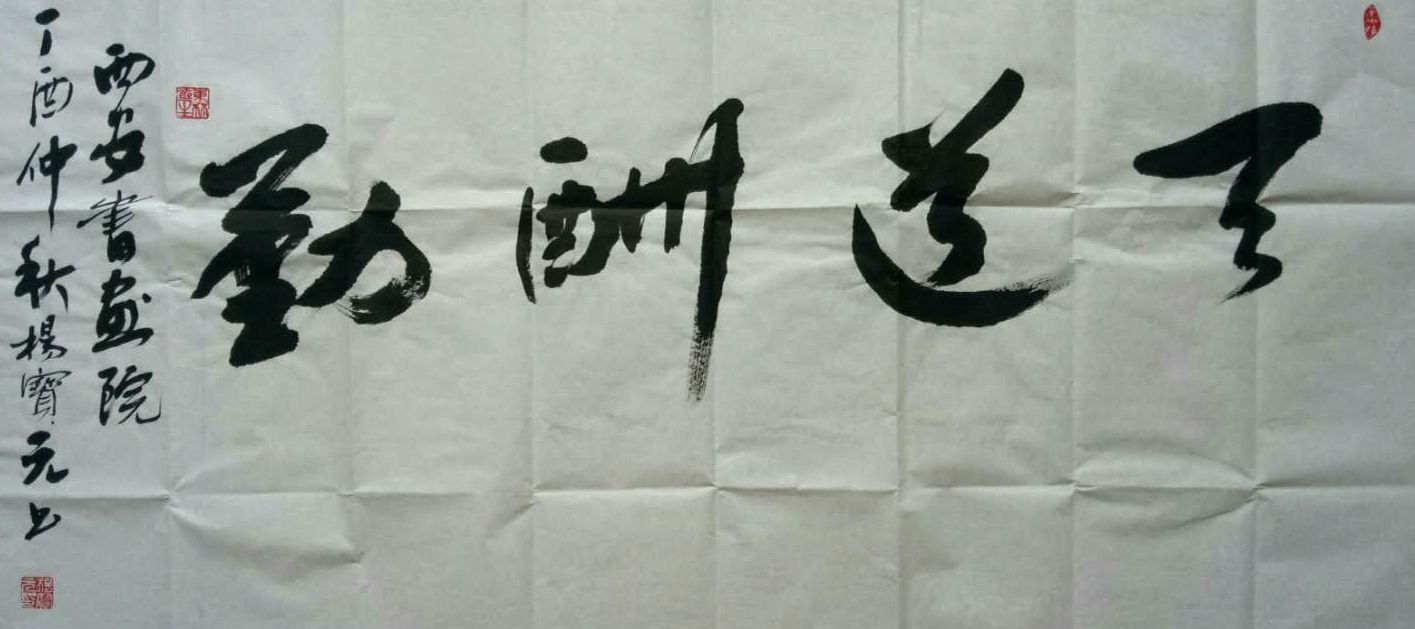 天道酬勤
西安書画院
丁酉仲秋楊寶元书